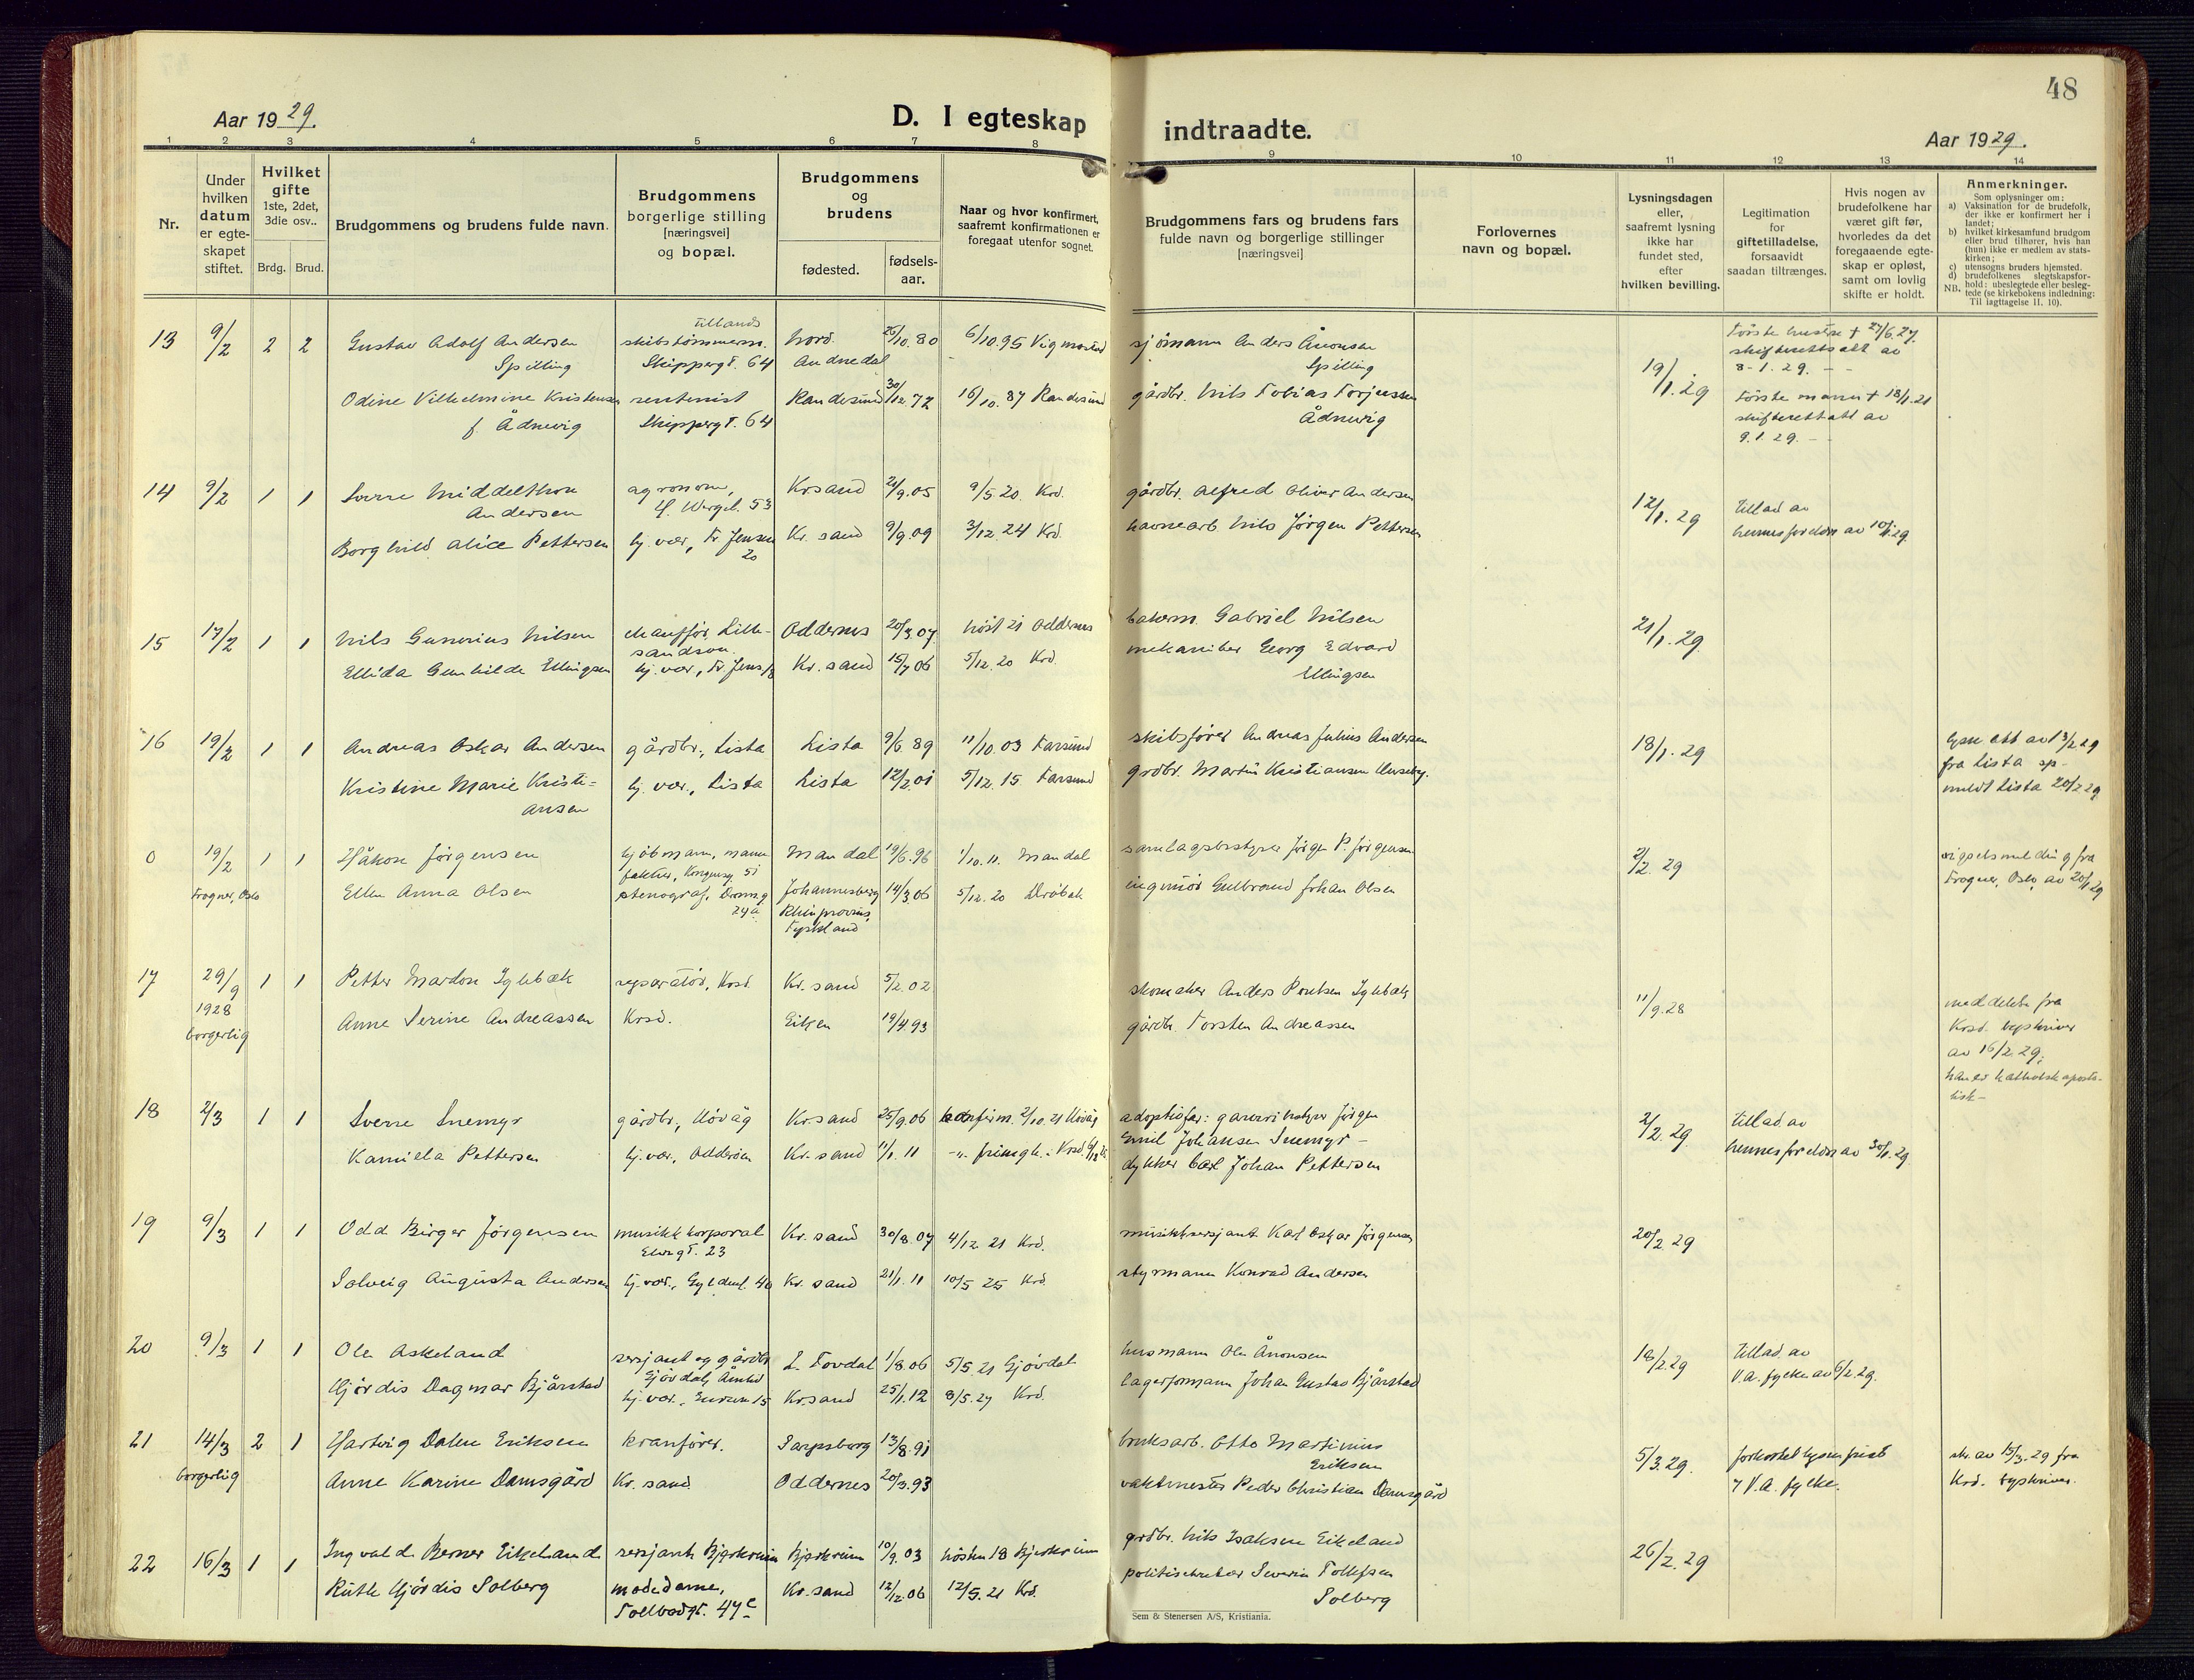 48
Aar 1929.
D. I egteskap indtraadte.
Aar 1929.
1 2 3 4 5 6 7 8 9 10 11 12 13 14
Nr.
Under hvilken datum er egteskapet stiftet.
Hvilket gifte 1ste, 2det, 3die osv..
Brdg. Brud.
Brudgommens og brudens fulde navn.
Brudgommens borgerlige stilling [næringsvei] og bopæl.
Brudgommens og brudens
fødested.
fødselsaar.
Naar og hvor konfirmert, saafremt konfirmationen er foregaat utenfor sognet.
Brudgommens fars og brudens fars fulde navn og borgerlige stillinger [næringsvei]
Forlovernes navn og bopæl.
Lysningsdagen eller, saafremt lysning ikke har fundet sted, efter hvilken bevilling.
Legitimation for giftetilladelse, forsaavidt saadan tiltrænges.
Hvis nogen av brudefolkene har været gift før, hvorledes da det foregaaende egteskap er opløst, samt om lovlig skifte er holdt.
Anmerkninger.
Som oplysninger om:
a) Vaksination for de brudefolk, der ikke er konfirmert her i landet;
b) hvilket kirkesamfund brudgom eller brud tilhører, hvis han (hun) ikke er medlem av statskirken;
c) utensogns bruders hjemsted.
d) brudefolkenes slegtskapsforhold: ubeslegtede eller beslegtede (se kirkebokens indledning:
NB. Til iagttagelse II. 10).
13 9/2 2 2 Gustav Adolf Andersen Spilling skibstømmerm. tillands Skippergt. 64 26/10.80 6/10.95 Vigmostad sjömann Anders Ånonsen Spilling 19/1.29 Første hustru + 27/6.27. skifterettsatt av 8-1.29. --
Odine Vilhelmine Kristensen f. Ådnevig rentenist Skippergt. 64 Randesund 30/12.72 16/10.87 Randesund gårdbr. Nils Tobias Torjussen Ådnevig Første mann + 18/1.21 skifterettsatt av 9.1.29. --
14 9/2 1 1 Sverre Middelthon Andersen agronom, H. Wergel. 53 Krsand 9/5 20. Krd. gårdbr. Alfred Oliver Andersen 12/1.29 tillad. av hennes foreldre av 10/1.29.
Borghild Alice Pettersen hj. vær, Fr. Jensen 20 Kr. sand 9/9.09 3/12.24 Krd. havnearb Nils Jørgen Pettersen
15 17/2 1 1 Nils Gunerius Nilsen chauffør, Lillesandsvn. Oddernes 20/3.07 høst 21 Oddernes bakerm. Gabriel Nilsen 21/1.29.
Ellida Gunhilde Ellingsen hj. vær, Fr. Jens. 18 Kr. sand 15/7 06 5/12.20 Krd. mekaniker Georg Edvard Ellingsen
16 19/2 1 1 Andreas Oskar Andersen gårdbr., Lista Lista 9/6 89 11/10.03 Farsund skibsfører Andreas Julius Andersen 18/1.29 lysn. att av 13/2 29 fra Lista sp- meldt Lista 20/2 29
Kristine Marie Kristiansen hj. vær., Lista Lista 12/2.01 5/12.15 Farsund grdbr. Martin Kristiansen
0 19/2 1 1 Håkon Jørgensen kjøbmann, Kongensg. 51 Mandal 19/6.96 1/10.11. Mandal samlagsbestyrer Jørgen P. Jørgensen 2/2.29 vigselsmelding fra Frogner, Oslo, av 20/2 29
Frogner, Oslo Ellen Anna Olsen stenograf, Dronng. 24a Johannesberg Rhinprovins, Tyskland 14/3.06 5/12.20 Drøbak ingeniør Gulbrand Johan Olsen
17 29/9 1928 borgerlig 1 1 Petter Mardon Iglebæk reparatør, Krsd. Kr. sand 5/2.02 skomaker Anders Poulsen Iglebæk 11/9.28 meddelelse fra Krsd. byskriver av 16/2 29; han er katholsk apostolisk -
Anne Serine Andreassen Krsd. Eiken 19/4.93 gårdbr. Torsten Andreassen
18 2/3 1 1 Sverre Snemyr gårdbr., Høvåg Kr.sand 25/9.06 konfirm. 2/10.21 Høvåg adoptivfar: Jørgen Emil Johansen Snemyr - 2/2.29 tillad. av hennes foreldre av 30/1.29.
Kamilla Pettersen hj. vær., Odderøen Kr. sand 11/1.11 -"- Krsd. dykker Carl Johan Pettersen
19 9/3 1 1 Odd Birger Jørgensen musikkkorporal Elvegt. 23 Kr. sand 30/8.07 4/12.21 Krd. musikksersjant Karl Oskar Jørgensen 20/2.29
Solveig Augusta Andersen hj. vær., Gyldenl. 40 Kr. sand 21/1.11 10/5 25 Krd. styrmann Konrad Andersen
20 9/3 1 1 Ole Askeland sersjant og gårdbr. Gjøvdal, Åmli L. Tovdal 1/8.06 5/5.21 Gjøvdal husmann Ole Ånonsen 18/2.29 tillad. av V.A. fylke av 6/2.29.
Hjørdis Dagmar Bjårstad hj. vær., 15 Kr.sand 25/1.12 8/5.27 Krd. lagerformann Johan Gustav Bjårstad
21 14/3 borgerlig 2 1 Hartvig Dalen Eriksen kranfører. Sarpsborg 13/8.91 bruksarb. Otto Martinius Eriksen 5/3.29. forkortet lysn. frist 7 V.A. fylke. skr. av 15/3.29 fra Krd. byskriver.
Anne Karine Damsgård Kr. sand Oddernes 20/3.93 vaktmester Peder Christian Damsgård
22 16/3 1 1 Ingvald Berner Eikeland sersjant Bjerkreim Bjerkreim 10/9.03 høsten 18 Bjerkreim grdbr. Nils Isaksen Eikeland 26/2.29
Ruth Hjørdis Solberg modedame, Tollbodgt. 47c Kr.sand 12/12.06 12/5.21 Krd. politisekretær Severin Tollefsen Solberg
Sem & Stenersen A/S, Kristiania.